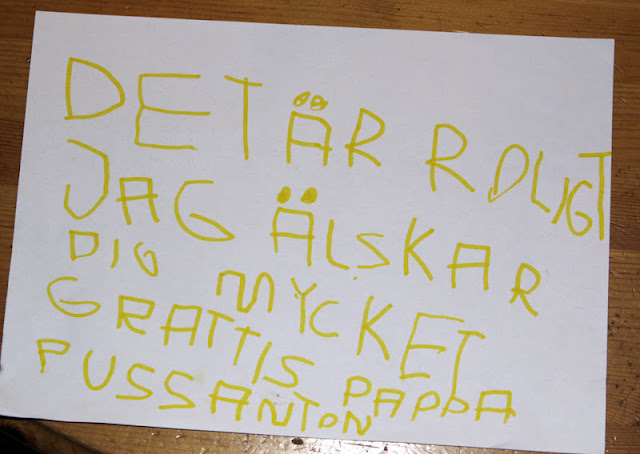 DET ÄR ROLIGT
JAG ÄLSKAR
DIG MYCKET
GRATTIS PAPPA
PUSSANTON